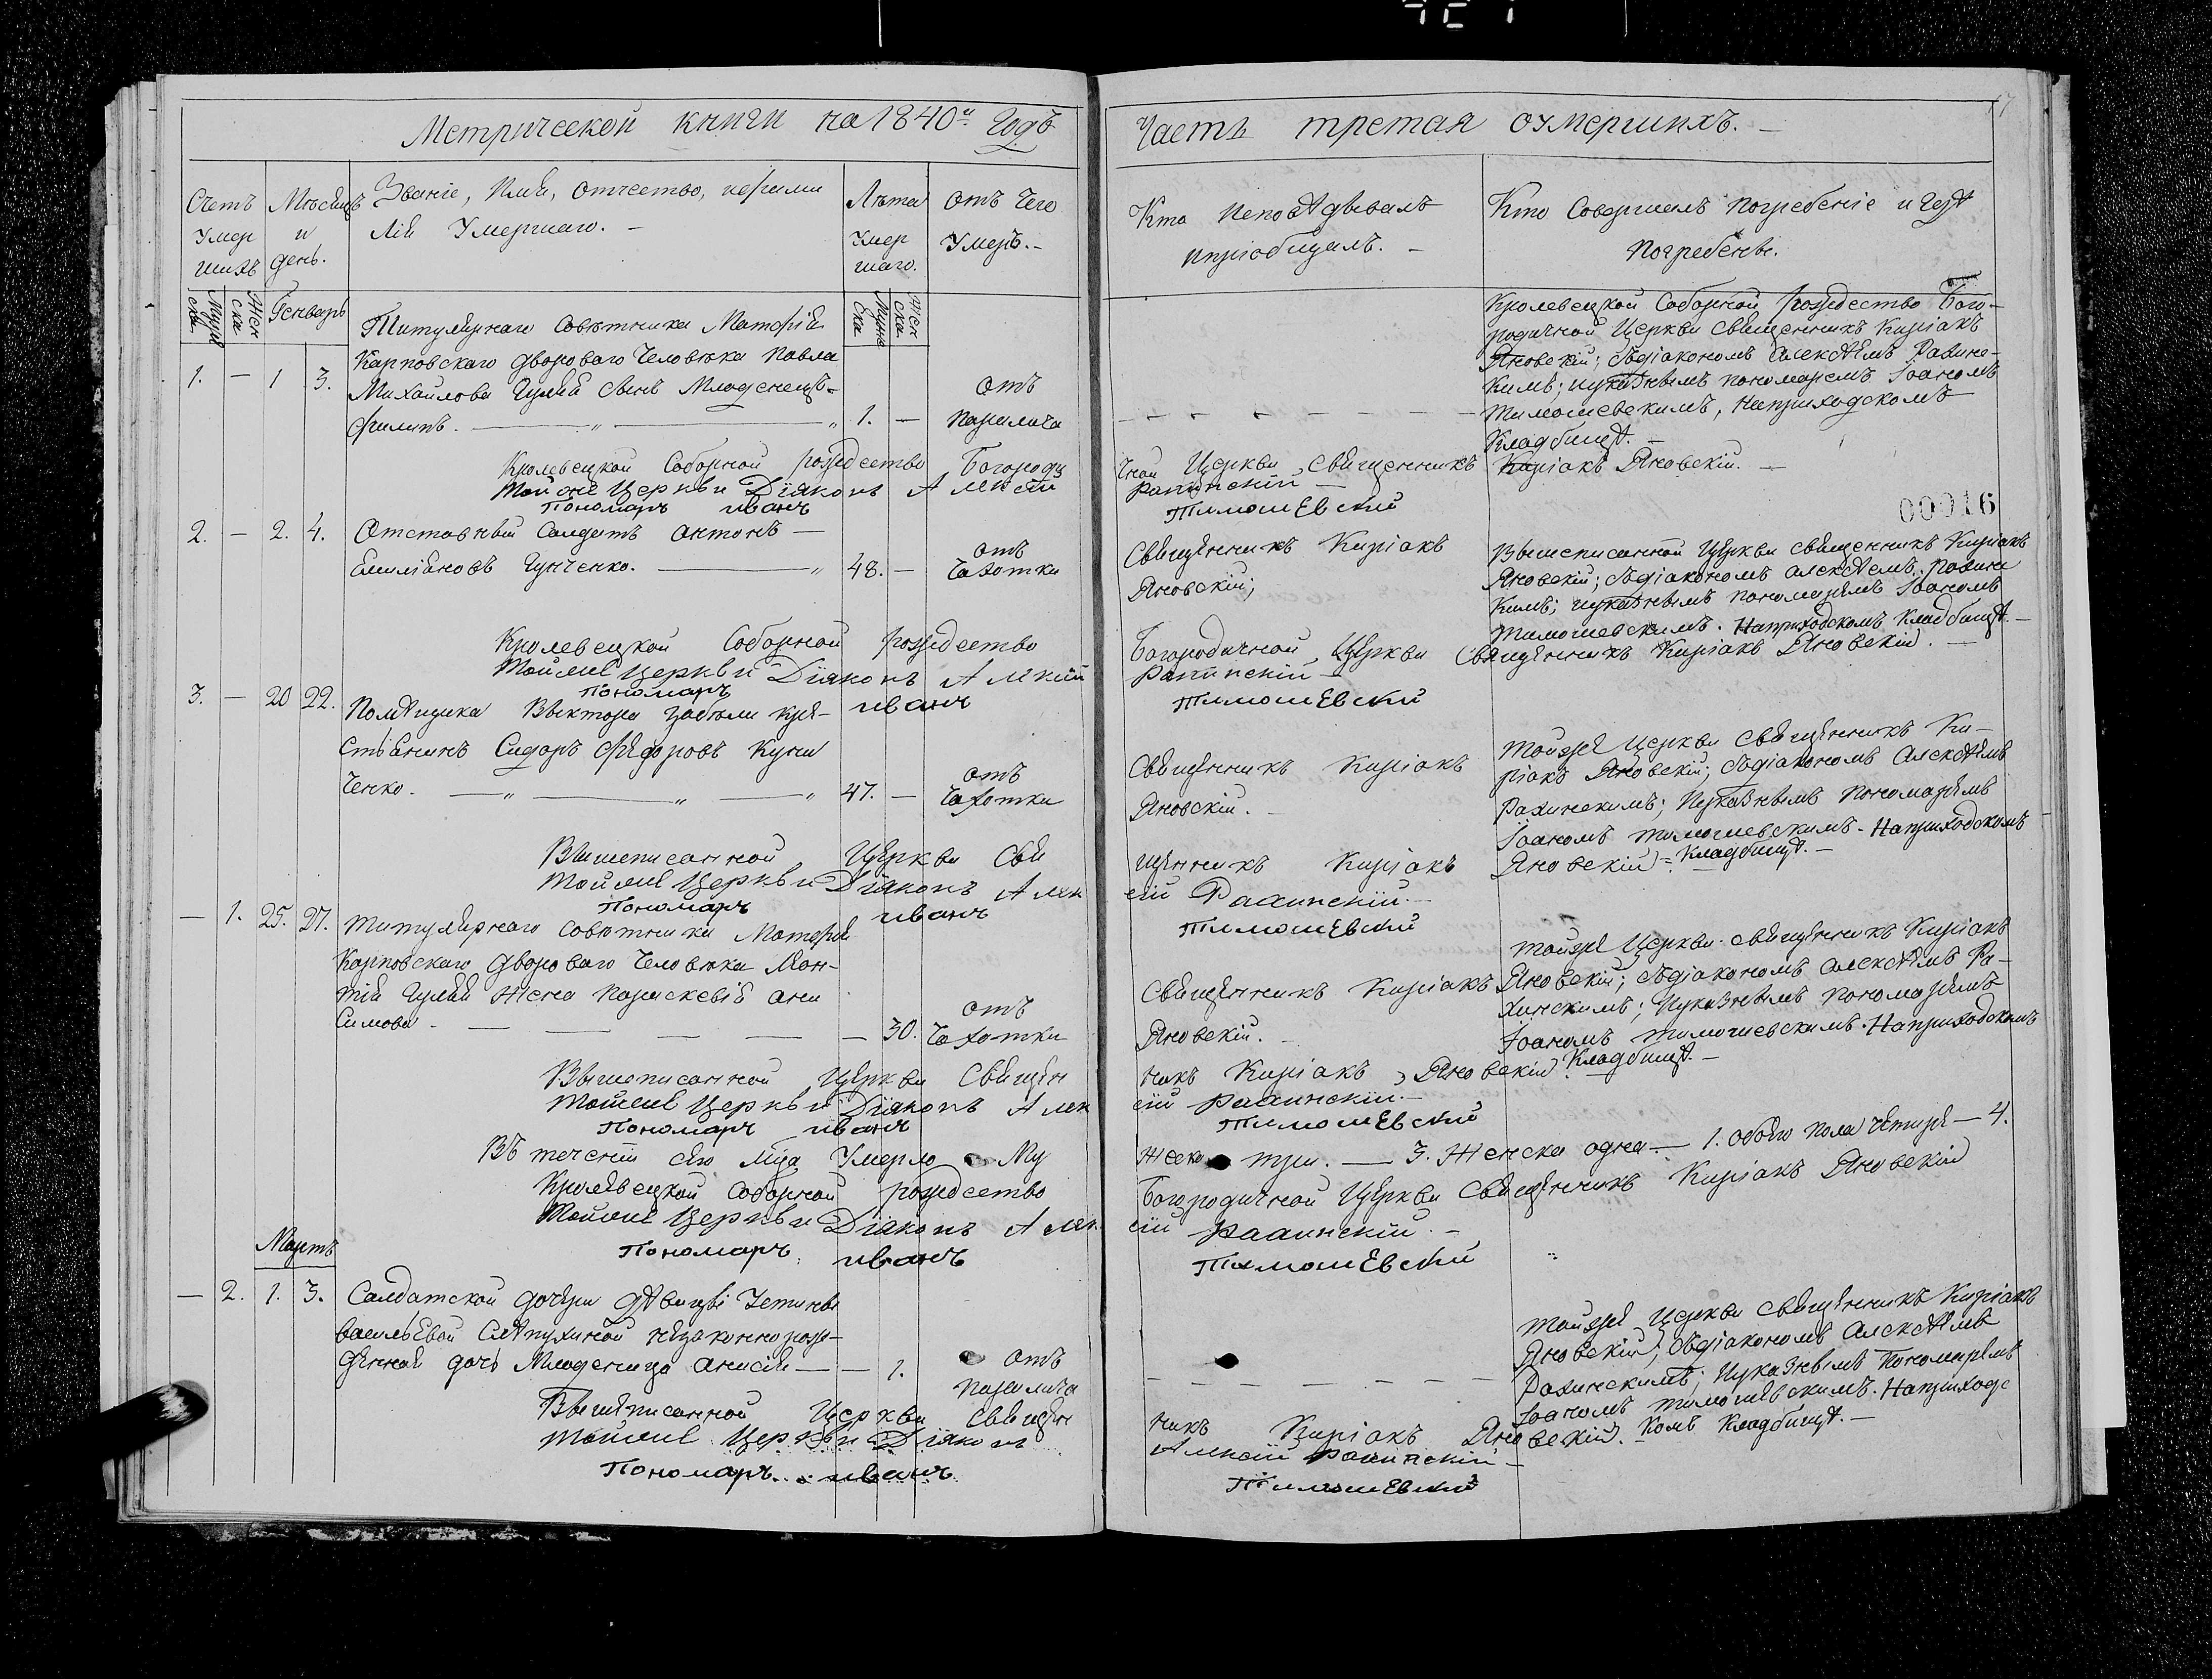 Метрической книги на 1840й Годъ
Часть третая оумершихъ.
17
Счетъ Умер шихъ
Мѣсяцъ и день.
Званіе, Имя, отчество, ифами
лія Умершаго.
Лѣта Умер шаго.
Отъ Чего Умеръ.
Кто Исповѣдывалъ
ипріобщалъ.
Кто Совершилъ погребеніе и Гдѣ
Погребены.
Мужеска
Женска
Генварь
Мужеска
Женска
Титулярнаго Совѣтника Матфія
Карповскаго двороваго Человѣка Павла
1. — 1 3. Михайлова Гулія Сынъ Младенецъ
Филипъ. 1. — Отъ Паралича
Кролевецкой Соборной рождество Бого-
родичной Церкви Священникъ Киріакъ
Яновскій; Сдіакономъ Алексѣемъ Рахинс-
кимъ; иуказнымъ пономаремъ Іоаномъ
Тимошевскимъ, Наприходскомъ
Кладбищѣ.
Кролевецкой Соборной рождество Богороди чной Церкви Священникъ Киріакъ Яновскій.
Тойже Церкви Діяконъ Алексій Рахинскій
Пономаръ иванъ Тимошевский
00016
2. — 2. 4. Отставный Солдатъ Антонъ
Емиліановъ Гунченко. 48. — отъ Чахотки
Священникъ Киріакъ
Яновскій;
Вышеписанной Церкви священникъ Киріакъ
Яновскій; Сдіакономъ Алексѣемъ Рахинс
кимъ; иуказнымъ пономаремъ Іоаномъ
Тимошевскимъ. Наприходскомъ Кладбищѣ.
Кролевецкой Соборной рождество Богородичной Церкви Священникъ Киріакъ Яновскій.
Тойже Церкви Діяконъ Алексій Рахинскій
Пономаръ иванъ Тимошевский
3. — 20 22. Помѣщика Виктора Забѣли кре-
стьянинъ Сидоръ Федоровъ
Ченко. 47. — отъ Чахотки
Священникъ Киріакъ
Яновскій.
Тойже Церкви Священникъ Ки-
ріакъ Яновскій; Сдіакономъ Алексѣемъ
Рахинскимъ; Иуказнымъ пономаремъ
Іоаномъ Тимошевскимъ. Наприходскомъ
Кладбищѣ.
Вышеписанной Церкви Свя щенникъ Киріакъ Яновскій
Тойже Церкви Діяконъ Алек сій Рахинскій.
Пономаръ иванъ Тимошевский
— 1. 25. 27. Титулярнаго Совѣтника Матфія
Карповскаго Двороваго Человѣка
Гулія Жена Параскевія Ани
Симова. 30. отъ Чахотки
Священникъ Киріакъ
Яновскій.
Тойже Церкви священникъ Киріакъ
Яновскій; Сдіакономъ Алексѣемъ Ра-
хинскимъ; Иуказнымъ Пономаремъ
Іоаномъ Тимошевскимъ. Наприходскомъ
Кладбищѣ.
Вышеписанной Церкви Священ никъ Киріакъ Яновскій
Тойже Церкви Діяконъ Алек сій Рахинскій.
Пономаръ иванъ Тимошевский
Въ теченіи сего Мца Умерло Му жеска три. — 3. Женска одна — 1. обоего пола четыре — 4.
Кролевецкой Соборной рождество Богородичной Церкви Священникъ Киріакъ Яновскій
Тойже Церкви Діяконъ Алек сій Рахинскій.
Пономаръ иванъ Тимошевский
Мартъ
— 2. 1. 3. Салдатской дочери дѣвицы
васильевой незаконнорож-
денная дочь Младеница Анисія 1. отъ паралича
Тойже Церкви Священникъ Киріакъ
Яновскій; Сдіакономъ Алексѣемъ
Рахинскимъ; Иуказнымъ Пономаремъ
Іоаномъ Тимошевскимъ. Наприходс
комъ Кладбищѣ.
Вышеписанной Церкви Священ никъ Киріакъ Яновскій.
Тойже Церкви Діяконъ Алексій Рахинскій
Пономаръ иванъ Тимошевский